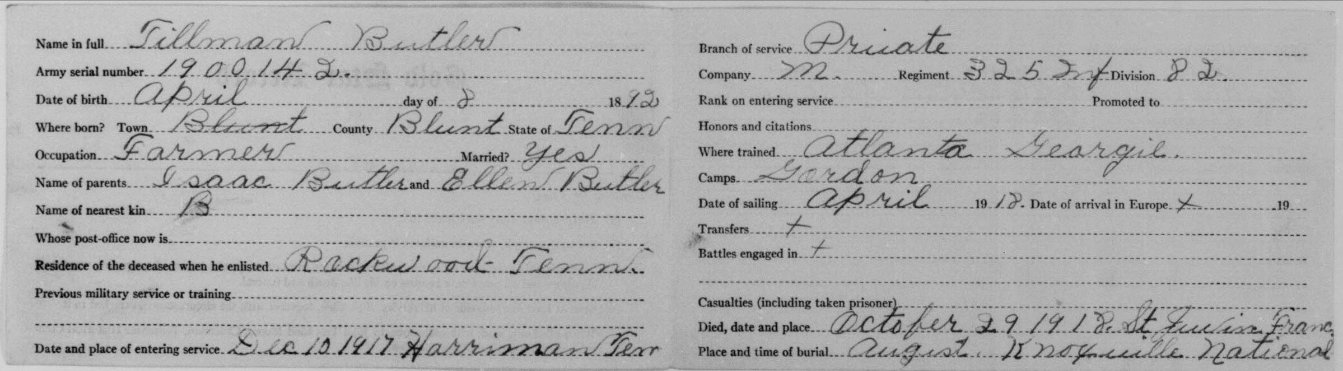 Name in full Tillman Butler
Army serial number 1900142.
Date of birth April day of 8 1892
Where born? Town Blunt County Blunt State of Tenn
Occupation Farmer Married? Yes
Name of parents Isaac Butler and Ellen Butler
Name of nearest kin B
Whose post-office now is
Residence of the deceased when he enlisted Rockwood Tenn.
Previous military service or training
Date and place of entering service Dec 10 1917 Harriman Ten
Branch of service Private
Company M. Regiment 325 Inf Division 82
Rank on entering service Promoted to
Honors and citations
Where trained Atlanta Georgie.
Camps Gordon
Date of sailing April 1918. Date of arrival in Europe x 19
Transfers x
Battles engaged in x
Casualties (including taken prisoner)
Died, date and place October 29 1918. St Franc
Place and time of burial August. Knoxville National